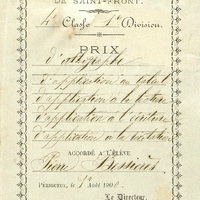 DE SAINT-FRONT.
4e Classe 1re Division.
PRIX
d'orthographe
d'application au calcul
d'application à la lecture
d'application à l'écriture
d'application à la récitation
ACCORDÉ A L'ÉLÈVE
Pierre Bessières
Périgueux, le Août 190
Le Directeur,